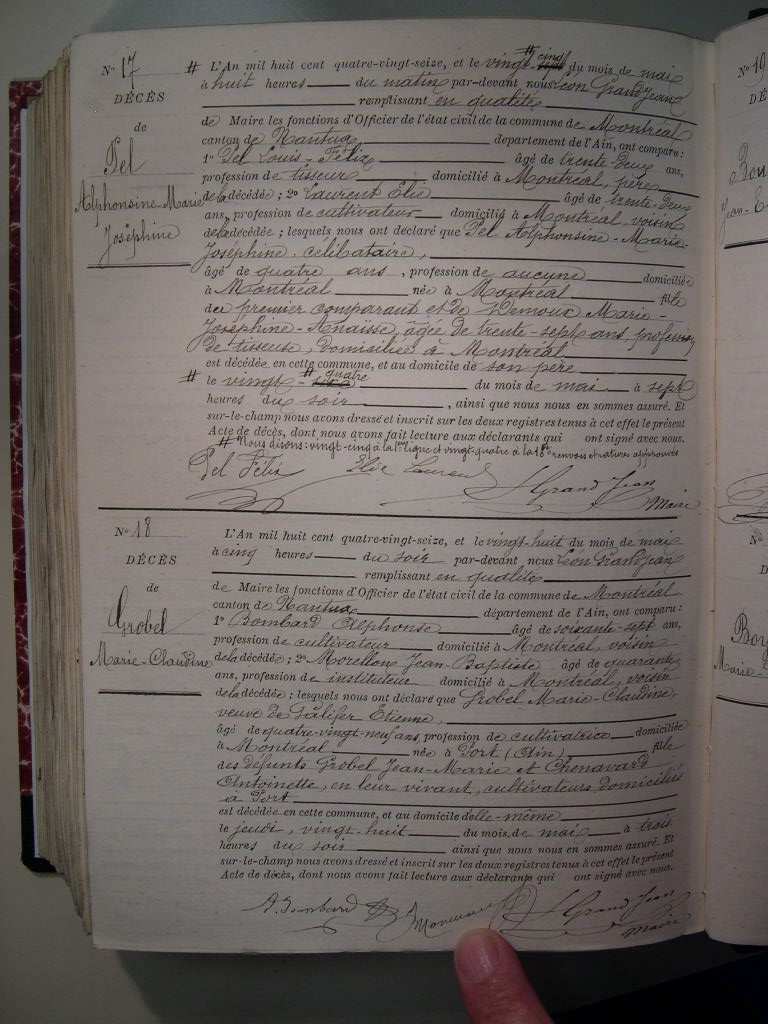 N° 17
DÉCÈS
de
Pel
Alphonsine-Marie
Joséphine
# L'An mil huit cent quatre-vingt-seize, et le vingt- # cinq du mois de mai
à huit heures du matin par-devant nous Léon Grandjean
remplissant en qualité
de Maire les fonctions d'Officier de l'état civil de la commune de Montréal
canton de Nantua département de l'Ain, ont comparu :
1° Pel Louis-Félix âgé de trente-deux ans,
profession de tisseur domicilié à Montréal, père
de la décédée ; 2° Laurent Elie âgé de trente-deux
ans, profession de cultivateur domicilié à Montréal, voisin
de la décédée ; lesquels nous ont déclaré que Pel Alphonsine-Marie-
Joséphine, célibataire,
âgé de quatre ans, profession de aucune domiciliée
à Montréal née à Montréal fille
du premier comparant et de Vernoux Marie-
Joséphine-Anaïsse, âgée de trente-sept ans, profession
de tisseuse, domiciliée à Montréal
est décédée en cette commune, et au domicile de son père
# le vingt- # quatre du mois de mai à sept
heures du soir, ainsi que nous nous en sommes assuré. Et
sur-le-champ nous avons dressé et inscrit sur les deux registres tenus à cet effet le présent
Acte de décès, dont nous avons fait lecture aux déclarants qui ont signé avec nous.
# Nous disons : vingt-cinq à la 1re ligne et vingt-quatre à la 18e renvois et ratures approuvés
Pel Félix Elie Laurent L Grand Jean
Maire
N° 18
DÉCÈS
de
Grobel
Marie-Claudine
L'An mil huit cent quatre-vingt-seize, et le vingt-huit du mois de mai
à cinq heures du soir par-devant nous Léon Grandjean
remplissant en qualité
de Maire les fonctions d'Officier de l'état civil de la commune de Montréal
canton de Nantua département de l'Ain, ont comparu :
1° Bombard Alphonse âgé de soixante-sept ans,
profession de cultivateur domicilié à Montréal, voisin
de la décédée ; 2° Morellon Jean-Baptiste âgé de quarante
ans, profession de instituteur domicilié à Montréal, voisin
de la décédée ; lesquels nous ont déclaré que Grobel Marie-Claudine,
veuve de Etienne,
âgé de quatre-vingt-neuf ans, profession de cultivatrice domiciliée
à Montréal née à Port (Ain) fille
des défunts Grobel Jean-Marie et Chenavard
Antoinette, en leur vivant, cultivateurs domiciliés
à Port
est décédée en cette commune, et au domicile d'elle-même
le jeudi, vingt-huit du mois de mai à trois
heures du soir ainsi que nous nous en sommes assuré. Et
sur-le-champ nous avons dressé et inscrit sur les deux registres tenus à cet effet le présent
Acte de décès, dont nous avons fait lecture aux déclarants qui ont signé avec nous.
A. Bombard L Grand Jean
Maire
N° 19